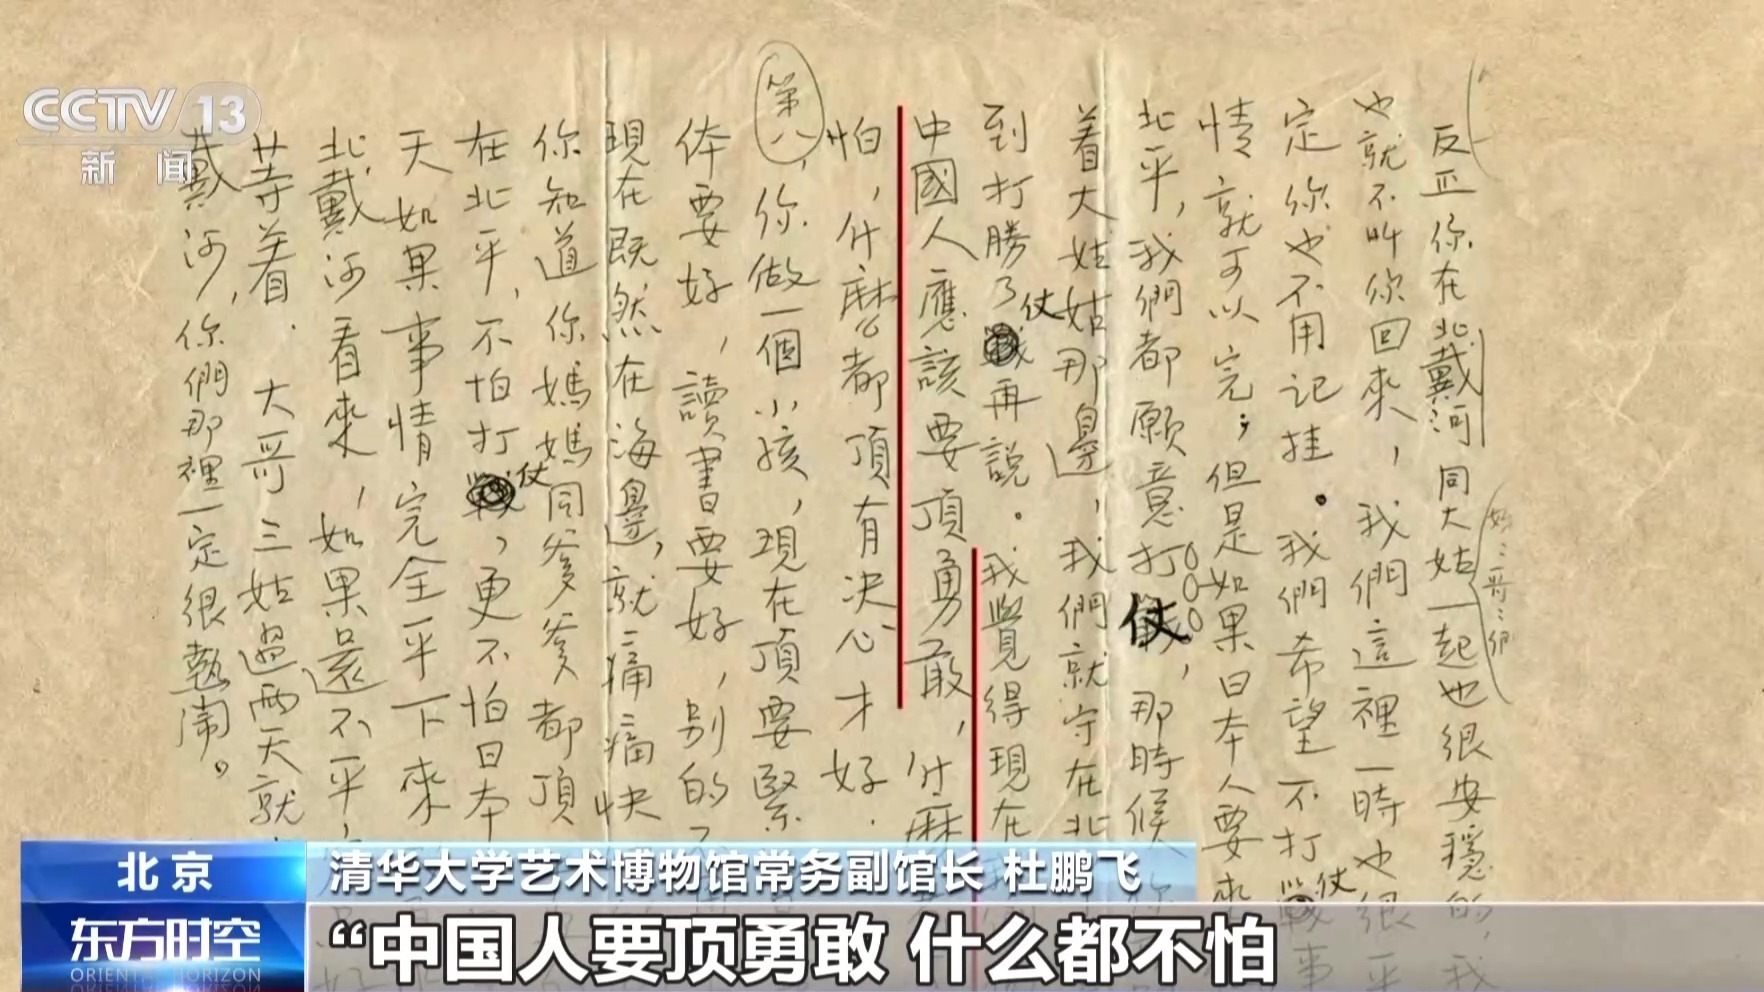 CCTV 13
新闻
反正你在北戴河同大姑一起也很安穩的，我
也就不叫你回來，我們這裡一時也很平
定你也不用记挂。我們希望不打仗事
情就可以完；但是如果日本人要來
北平，我們都願意打仗，那時候你
着大姑姑那邊，我們就守在北
到打勝了仗再説。我覺得現在
中國人應該要頂勇敢，什麽
怕，什麽都頂有決心才好．
第八，你做一個小孩，現在頂要緊
体要好，讀書要好，別的
現在既然在海邊，就痛痛快
你知道你媽媽同爹爹都頂
在北平，不怕打仗，更不怕日本
天如果事情完全平下來
北戴河看來，如果還不平
等着．大哥三姑過两天就
戴河，你們那裡一定很熱闹。
北京
清华大学艺术博物馆常务副馆长 杜鹏飞
东方时空
ORIENTAL HORIZON
“中国人要顶勇敢 什么都不怕